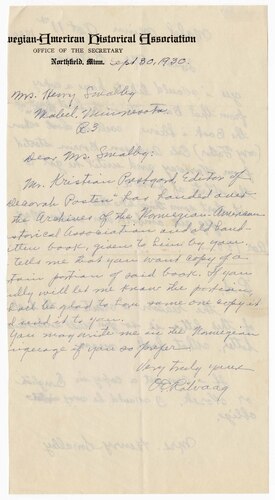 wegian-American Historical Association
OFFICE OF THE SECRETARY
Northfield, Minn. Sept 30, 1930.
Mrs. Henry Smalby
Mabel, Minnesota
R. 3
Dear Mrs. Smalby:
Mr. Kristian Prestgard, Editor of
Decorah Posten has handed over
the Archives of the Norwegian American
storical Association an old hand-
itten book, given to him by you.
tells me that you want copy of a
tain portion of said book. If you
will let me know the portion,
shall be glad to have some one copy it
d send it to you.
You may write me in the Norwegian
nguage if you so prefer.
Very truly yours
O E Rølvaag
Mrs. Henry Smalby